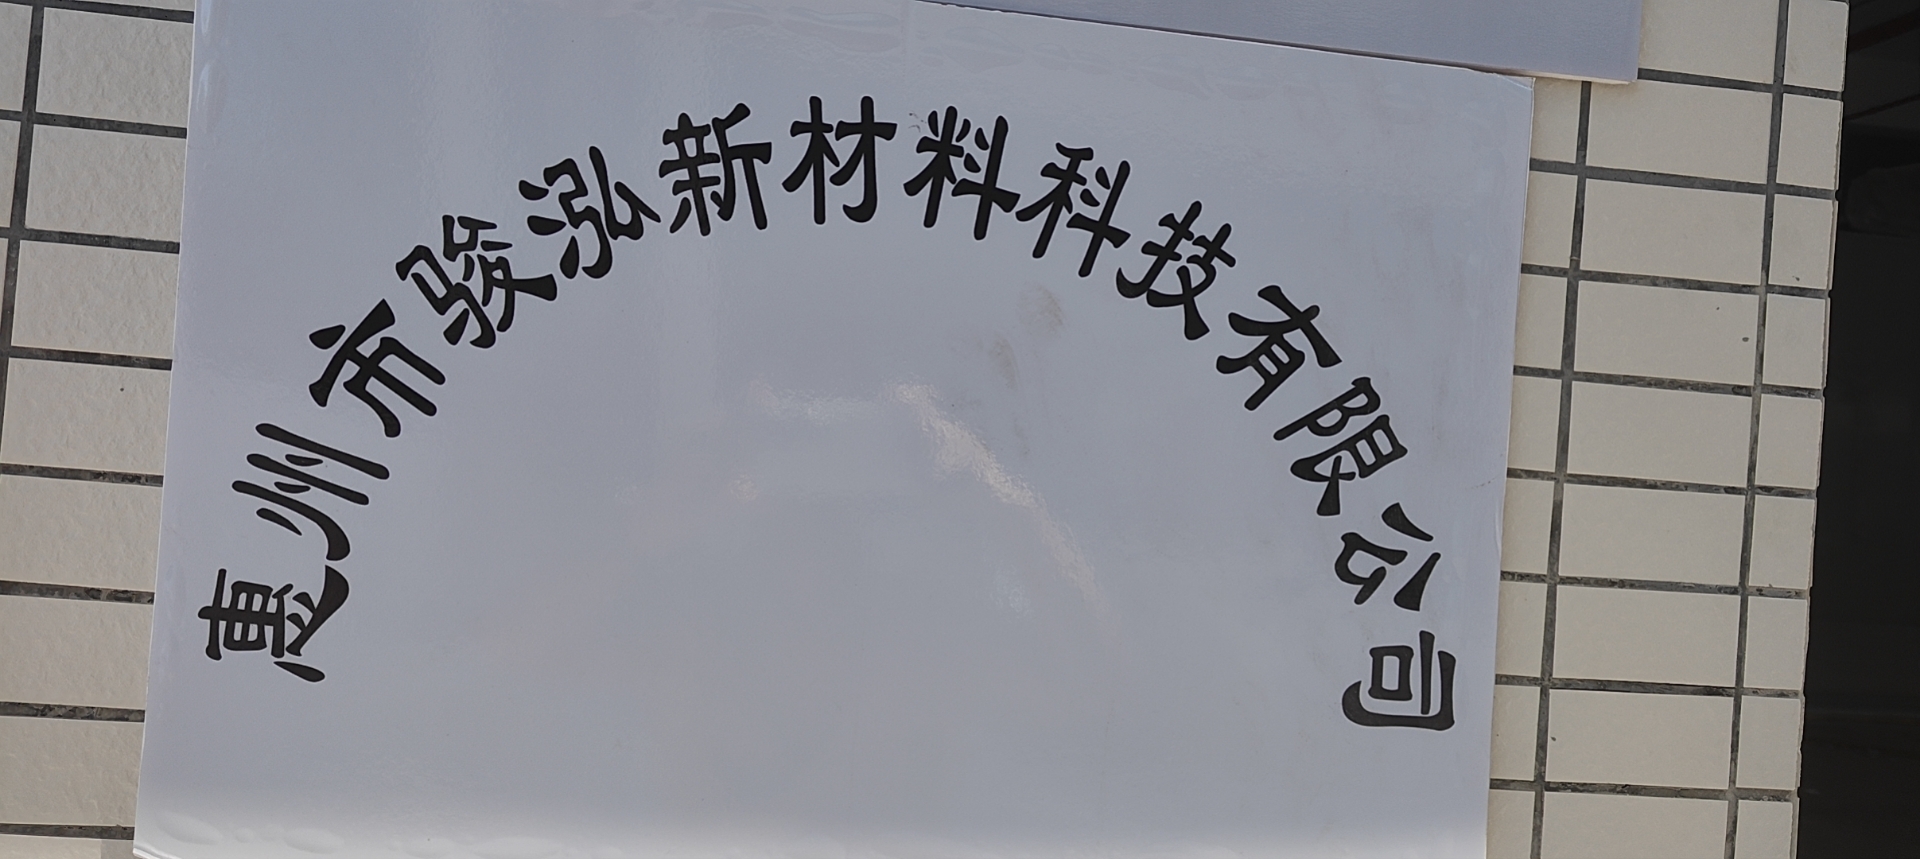 惠州市骏泓新材料科技有限公司